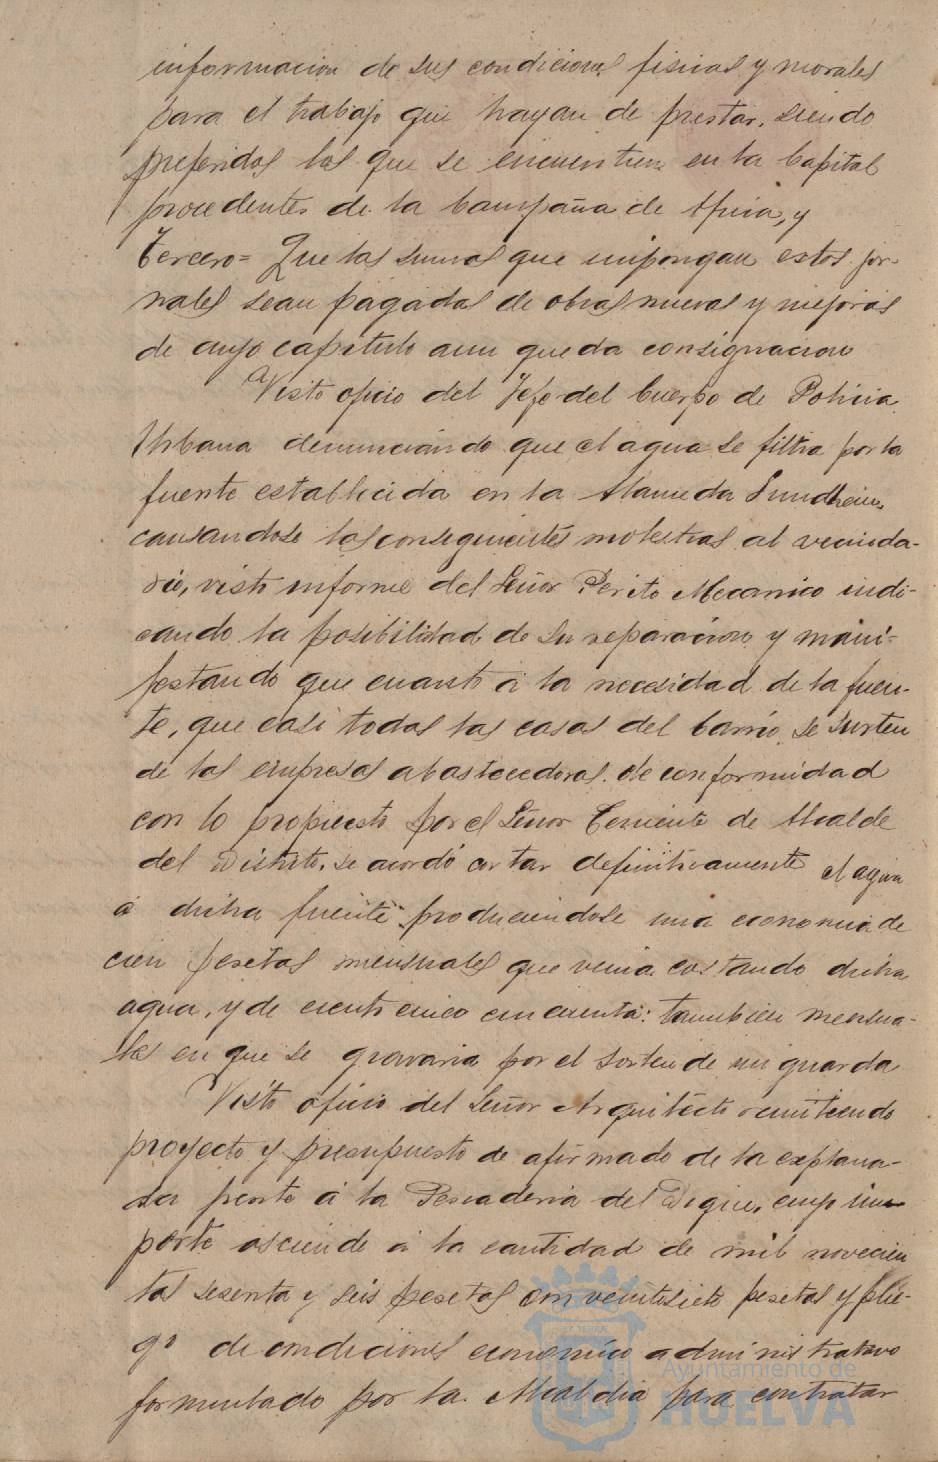 informacion de sus condiciones fisicas y morales
para el trabajo que hayan de prestar, siendo
preferidos los que se encuentren en la Capital
procedentes de la Campaña de Africa, y
Tercero= Que las sumas que impongan estos jor-
nales sean pagadas de obras nuevas y mejoras
de cuyo capitulo aun queda consignacion
Visto oficio del Jefe del Cuerpo de Policia
Urbana denunciando que el agua se filtra por la
fuente establecida en la Alameda Sundheim
causandose las consiguientes molestias al vecinda-
rio, visto informe del Señor Perito Mecanico indi-
cando la posibilidad de su reparacion y mani-
festando que cuanto á la necesidad de la fuen-
te, que casi todas las casas del barrio se surten
de las empresas abastecedoras. de conformidad
con lo propuesto por el Señor Teniente de Alcalde
del Distrito, se acordó cortar definitivamente el agua
á dicha fuente produciendose una economia de
cien pesetas mensuales que venia costando dicha
agua, y de ciento cinco cincuenta: tambien mensua-
les en que se gravaria por el sosten de un guarda
Visto oficio del Señor Arquitecto remitiendo
proyecto y presupuesto de afirmado de la explana-
da frente á la Pescaderia del Dique, cuyo im-
porte asciende á la cantidad de mil novecien
tas sesenta y seis pesetas con veintisiete pesetas y plie-
go de condiciones economico administrativo
formulado por la Alcaldia para contratar
Ayuntamiento de
HUELVA